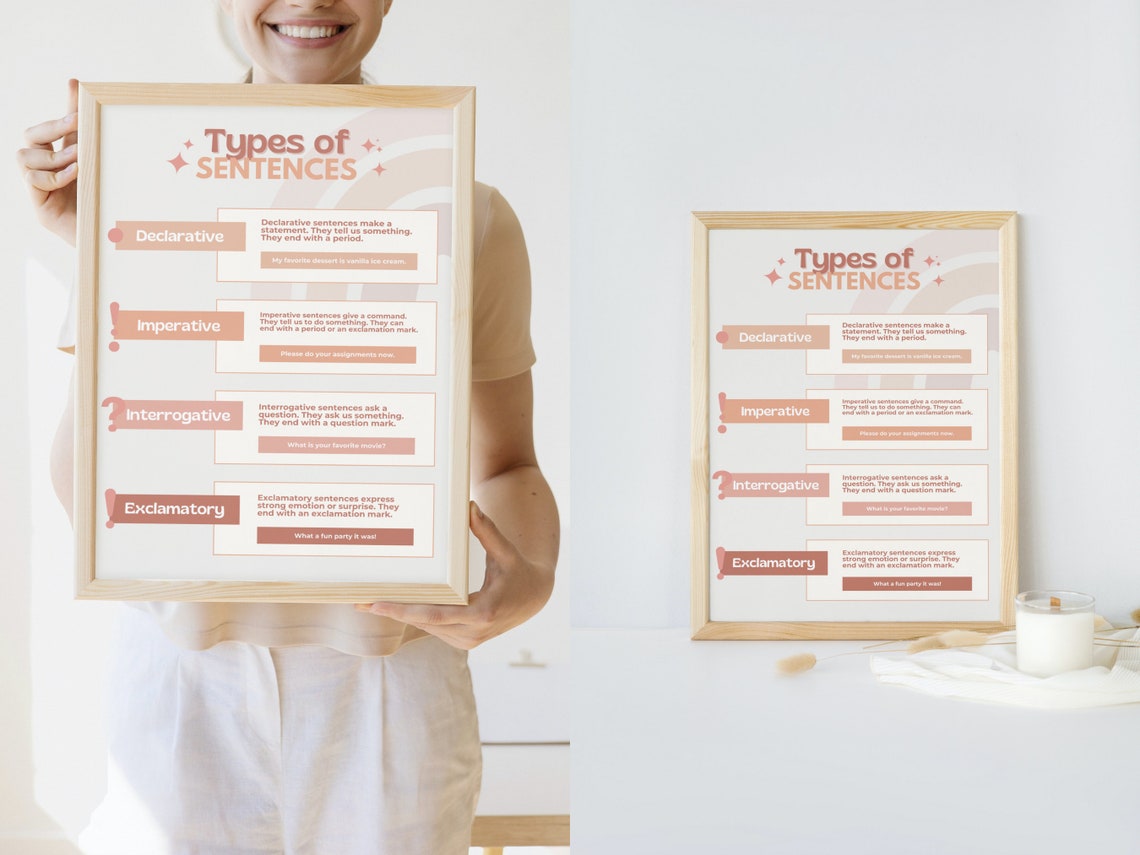 Types of
SENTENCES
Declarative
Declarative sentences make a
statement. They tell us something.
They end with a period.
My favorite dessert is vanilla ice cream.
!
Imperative
Imperative sentences give a command.
They tell us to do something. They can
end with a period or an exclamation mark.
Please do your assignments now.
?
Interrogative
Interrogative sentences ask a
question. They ask us something.
They end with a question mark.
What is your favorite movie?
!
Exclamatory
Exclamatory sentences express
strong emotion or surprise. They
end with an exclamation mark.
What a fun party it was!
Types of
SENTENCES
Declarative
Declarative sentences make a
statement. They tell us something.
They end with a period.
My favorite dessert is vanilla ice cream.
!
Imperative
Imperative sentences give a command.
They tell us to do something. They can
end with a period or an exclamation mark.
Please do your assignments now.
?
Interrogative
Interrogative sentences ask a
question. They ask us something.
They end with a question mark.
What is your favorite movie?
!
Exclamatory
Exclamatory sentences express
strong emotion or surprise. They
end with an exclamation mark.
What a fun party it was!